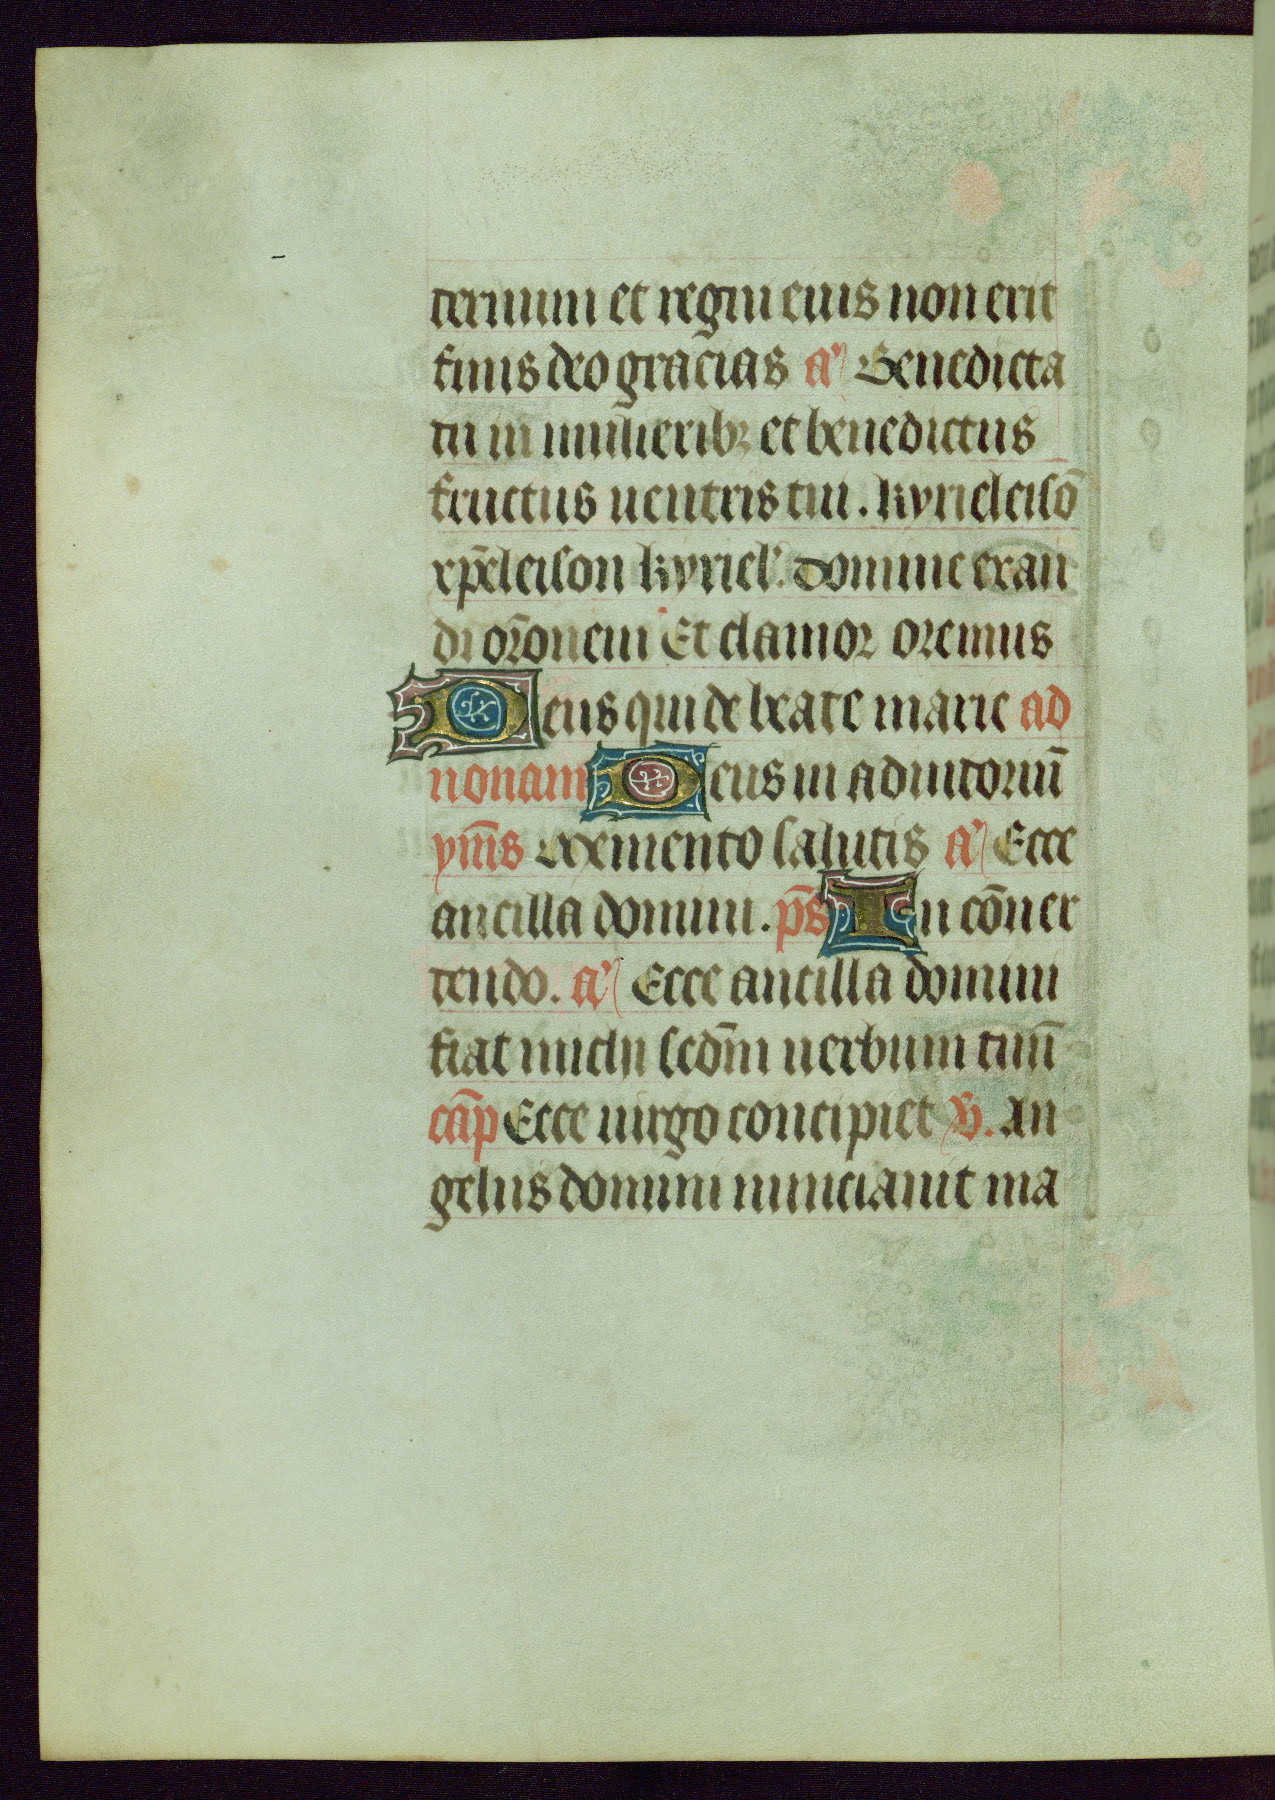 ternum et regni euis non erit
finis deo gracias a' Benedicta
tu in mulieribꝫ et benedictus
fructus uentris tui. kyrieleisō
xp̄eleison kyriel'. domine exau
di or̄onem Et clamor oremus
Deus qui de beate marie ad
nonam Deus in adiutoriū
ym̄s Memento salutis a' Ecce
ancilla domini. p̄s In cōuer
tendo. a' Ecce ancilla domini
fiat michi scd̄m uerbum tuū
cāp Ecce uirgo concipiet ℣. An
gelus domini nunciauit ma